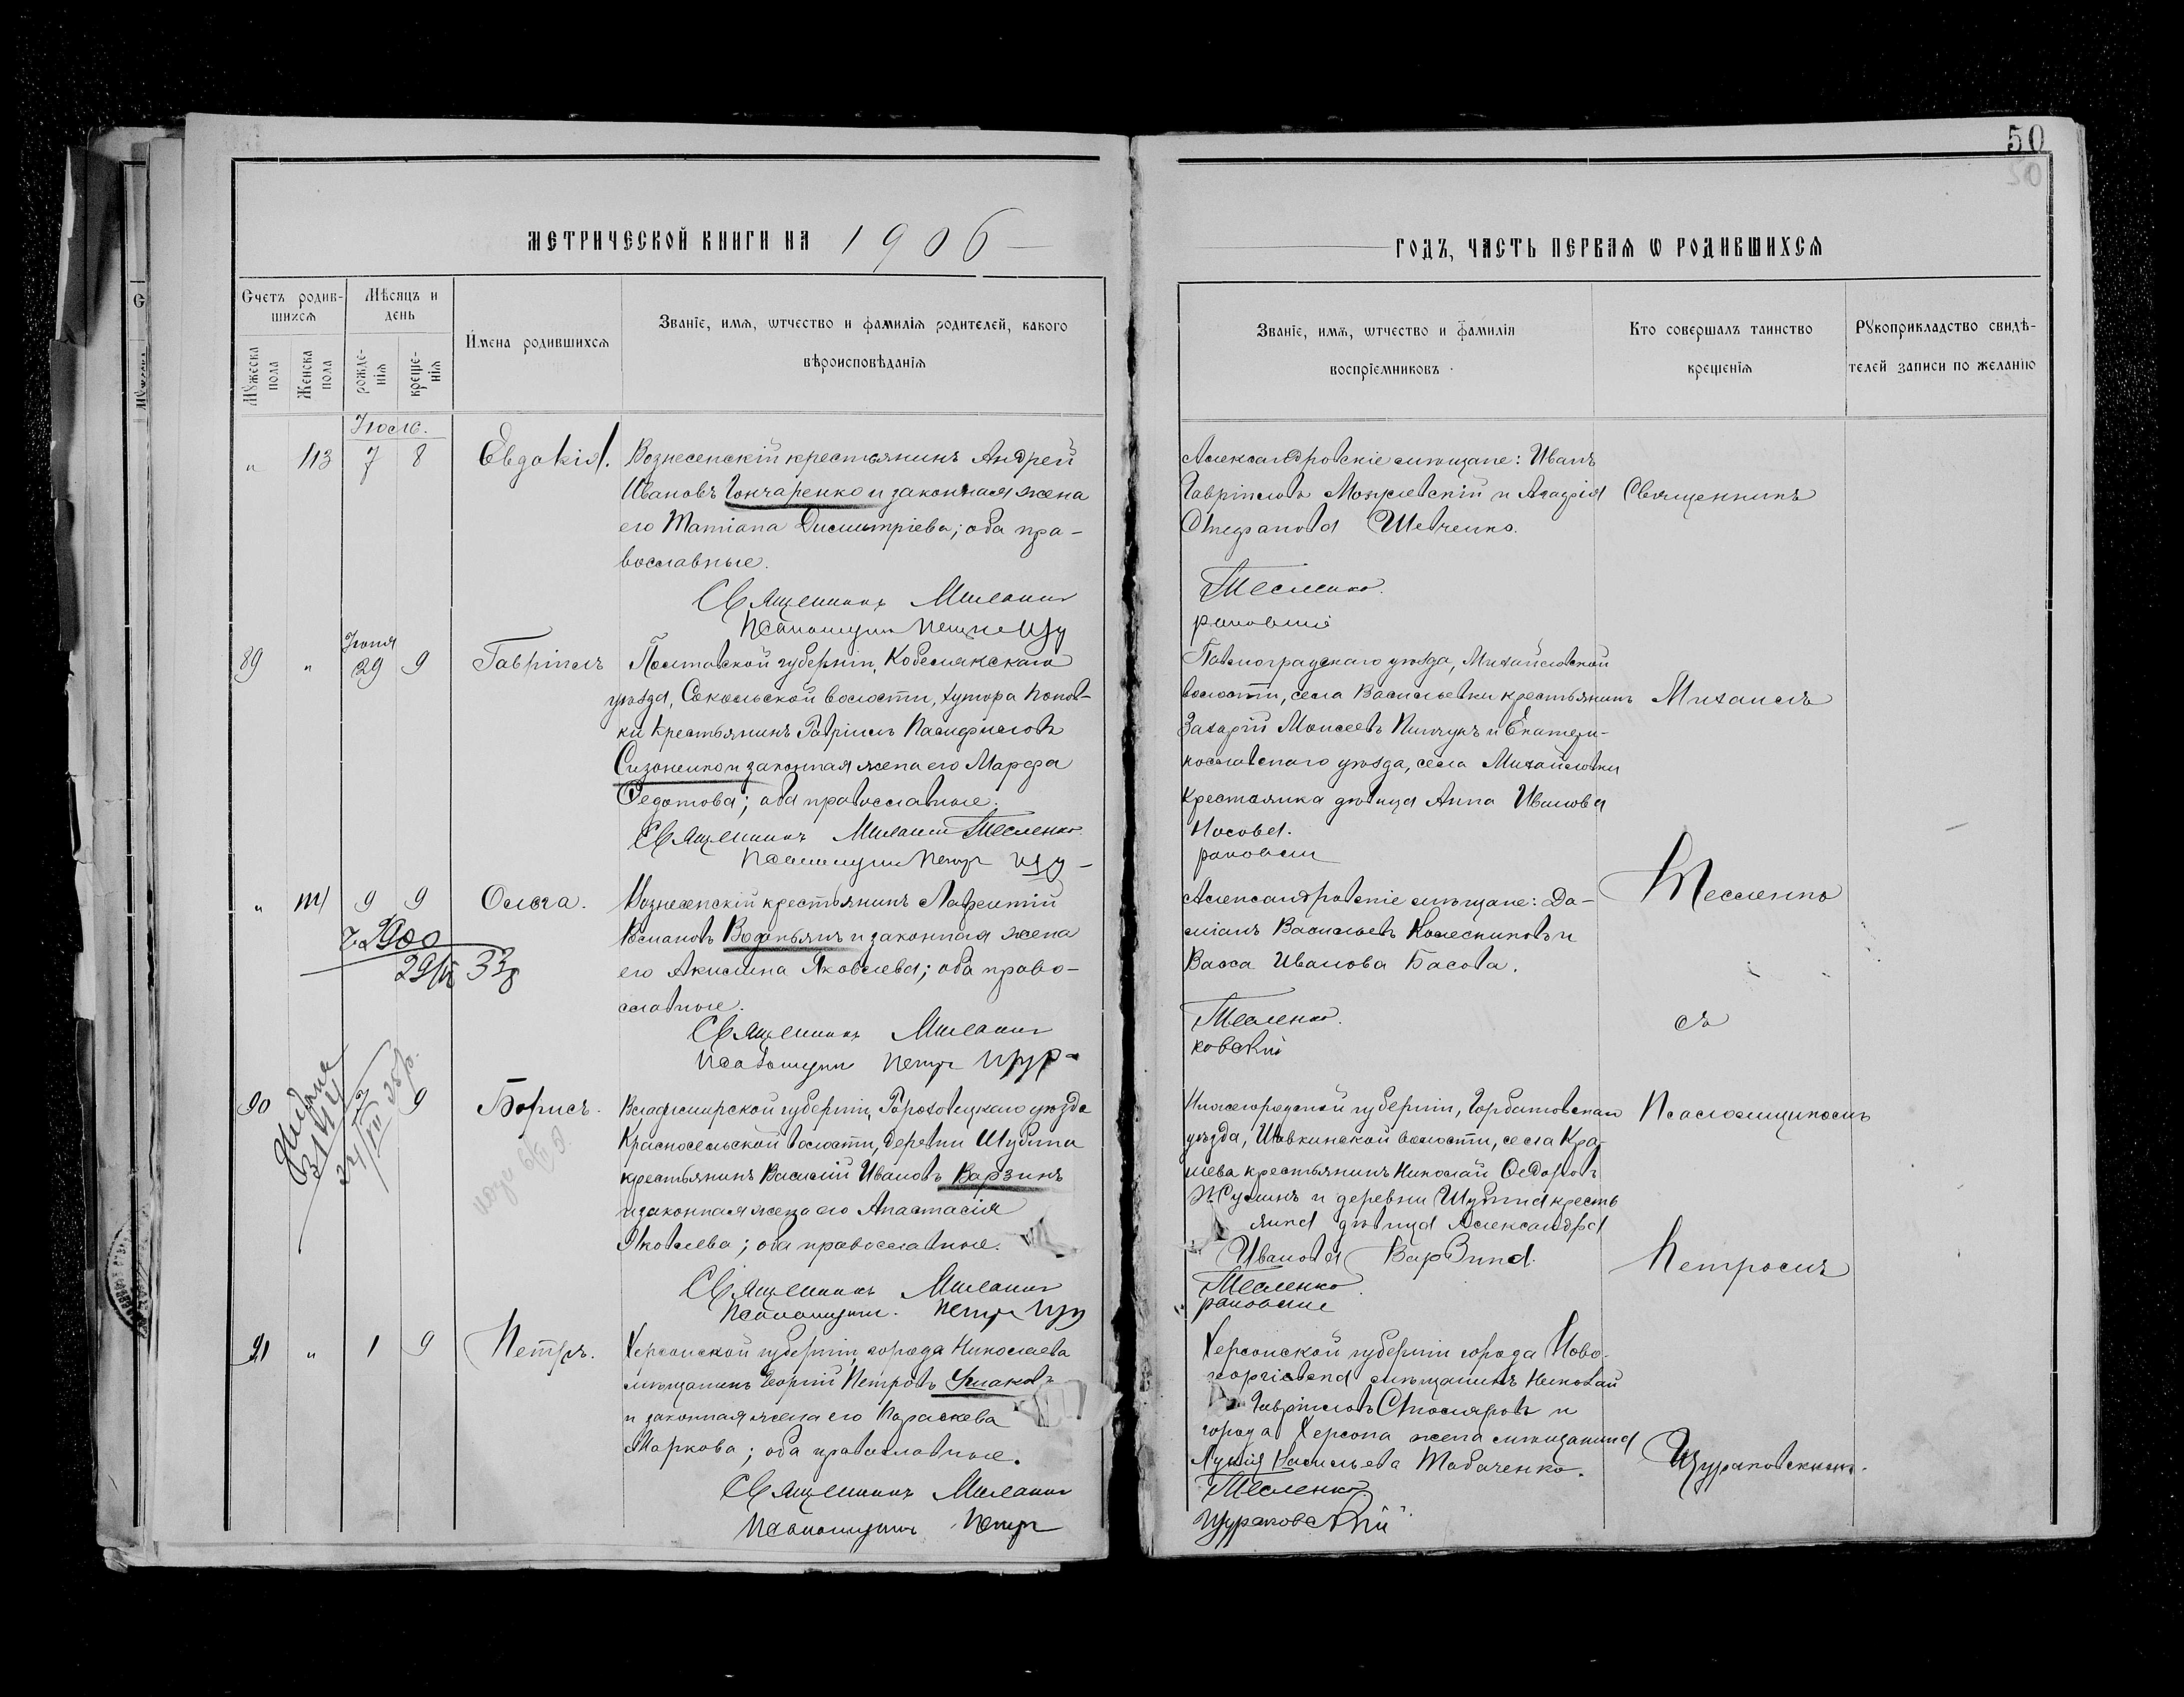 50
50
МЕТРИЧЕСКОЙ КНИГИ НА 1906
ГОДЪ, ЧАСТЬ ПЕРВАЯ Ѡ РОДИВШИХСЯ
Счетъ родив-
шихся
Мѣсяцъ и
день
Имена родившихся
Званіе, имя, ѡтчество и фамилія родителей, какого
вѣроисповѣданія
Мꙋжеска
пола
Женска
пола
рожде-
нія
креще-
нія
Званіе, имя, ѡтчество и фамилія
воспріемниковъ
Кто совершалъ таинство
крещенія
Рꙋкоприкладство свидѣ-
телей записи по желанію
Іюль.
" 113 7 8 Евдокія.
Вознесенскій крестьянинъ Андрей
Ивановъ Гончаренко и законная жена
его Татіана Димитріева; оба пра-
вославные.
Священникъ Михаилъ
Псаломщикъ Петръ Щу
Александровскіе мѣщане: Иванъ
Гавріиловъ и
Стефанова Шевченко.
Тесленко.
раковскій
Священникъ
Іюня
89 " 29 9 Гавріилъ
Полтавской губерніи, Кобелякскаго
уѣзда, Сокольской волости, хутора Попов-
ки крестьянинъ Гавріилъ Памфиловъ
Сизоненко и законная жена его Марфа
Федотова; оба православные.
Священникъ Михаилъ Тесленко
Псаломщикъ Петръ Щу-
Павлоградскаго уѣзда, Михайловской
волости, села Васильевки крестьянинъ
Захарій Моисеевъ Пинчукъ и Екатери-
нославскаго уѣзда, села Михайловки
крестьянка дѣвица Анна Иванова
Носова.
раковскій
Михаилъ
" 114 9 9 Ольга.
Вознесенскій крестьянинъ Лаврентій
Водопьянъ и законная жена
его Акилина Яковлева; оба право-
славные.
Священникъ Михаилъ
Псаломщикъ Петръ Щура-
Александровскіе мѣщане: Да-
міанъ Васильевъ Колесниковъ и
Васса Иванова Басова.
Тесленко.
ковскій
Тесленко
съ
90 9 Борисъ.
Владимирской губерніи, Гороховецкаго уѣзда
Красносельской волости, деревни Шубина
крестьянинъ Василій Ивановъ Варзинъ
и законная жена его Анастасія
Яковлева; оба православные.
Священникъ Михаилъ
Псаломщикъ Петръ Щу
Нижегородской губерніи, Горбатовскаго
уѣзда, волости, села
крестьянинъ Николай Федоровъ
и деревни Шубина кресть
янка дѣвица Александра
Иванова Варзина.
Тесленко
раковскій
Псаломщикомъ
Петромъ
91 " 1 9 Петръ.
Херсонской губерніи, города Николаева
мѣщанинъ Георгій Петровъ Ушаковъ
и законная жена его Параскева
Маркова; оба православные.
Священникъ Михаилъ
Псаломщикъ Петръ
Херсонской губерніи города Ново-
георгіевска мѣщанинъ Николай
Гавріиловъ Столяровъ и
города Херсона жена мѣщанина
Васильева Табаченко.
Тесленко
Щураковскій
Щураковскимъ.